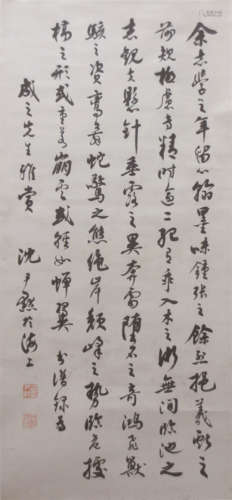 余志學之年留心翰墨味鍾張之餘烈挹羲獻之
前規極慮專精時逾二紀有乖入木之術無間臨池之
志觀夫懸針垂露之異奔雷墮石之奇鴻飛獸
駭之資鸞舞蛇驚之態絕岸頹峰之勢臨危據
槁之形或重若崩雲或輕如蟬翼 書譜錄為
成之先生雅賞
沈尹默於海上